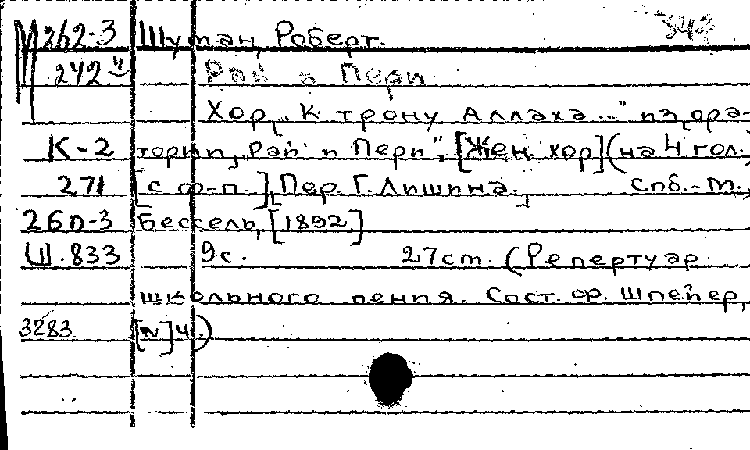 М262-3 Шуман, Роберт. 342
242 Рай и Пери
Хор „К трону Аллаха..." из ора-
К-2 тории „Рай и Пери". [Жен. хор] (на 4 гол.,
271 [с ф-п.]. Пер. Г. Лишина. Спб.-М.,
26П-3 Бессель, [1892]
Ш.833 9с. 27cm. (Репертуар
школьного пения. Сост. Ор. Шпейер,
3283 [N] 4.)